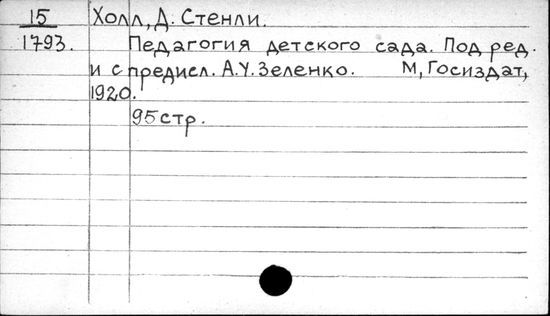 15 Холл, Д. Стенли.
1793. Педагогия детского сада. Под ред.
и с предисл. А.У. Зеленко. М, Госиздат,
1920.
95 стр.